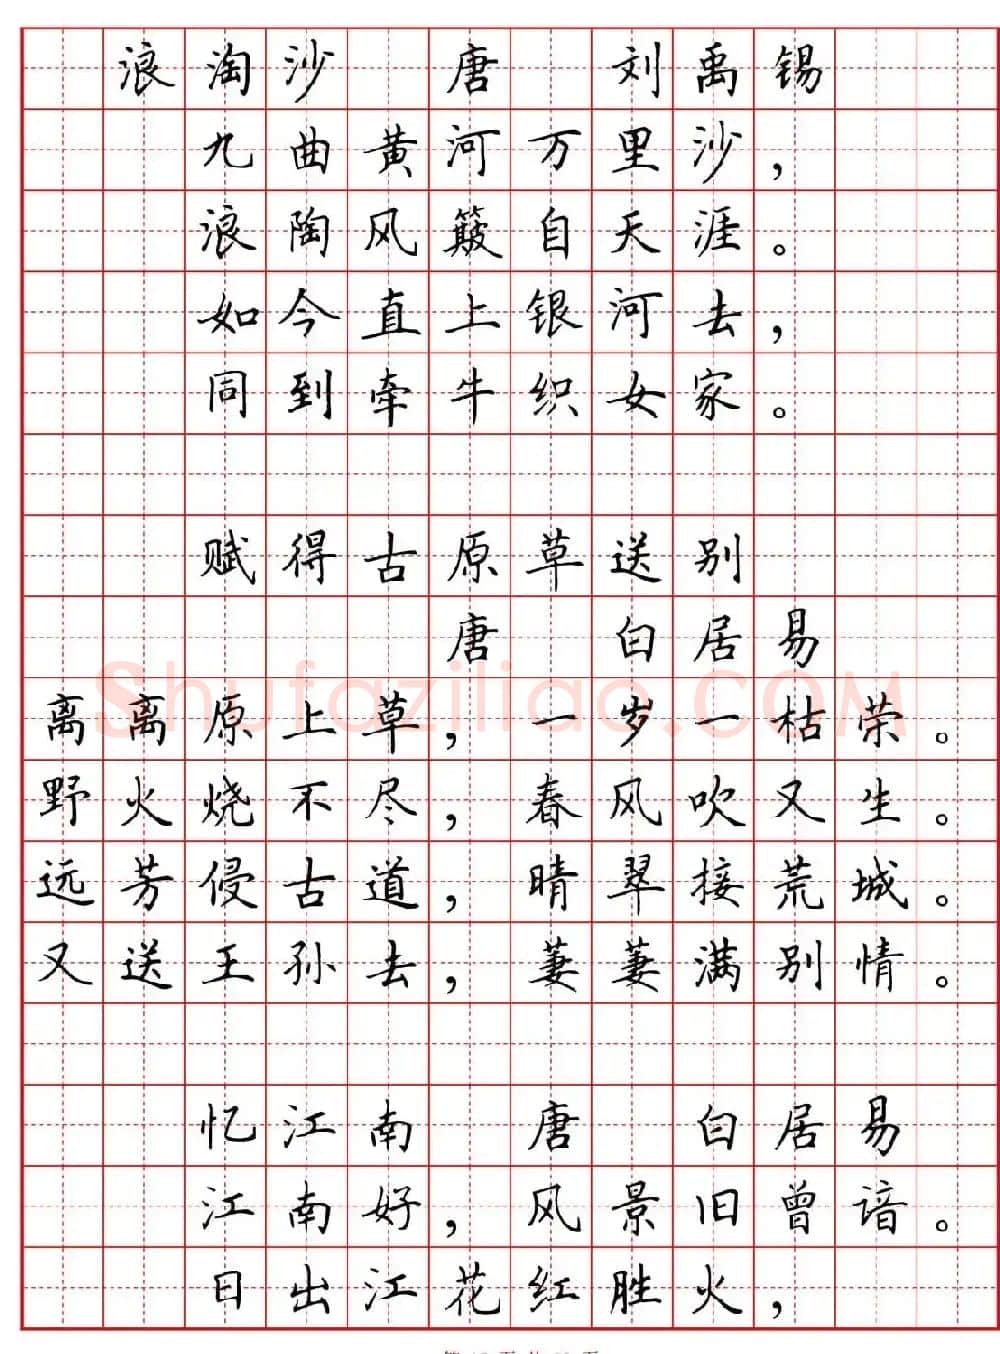 浪淘沙 唐 刘禹锡
九曲黄河万里沙，
浪陶风簸自天涯。
如今直上银河去，
同到牵牛织女家。
赋得古原草送别
唐 白居易
离离原上草，一岁一枯荣。
野火烧不尽，春风吹又生。
远芳侵古道，晴翠接荒城。
又送王孙去，萋萋满别情。
忆江南 唐 白居易
江南好，风景旧曾谙。
日出江花红胜火，
Shufaziliao.COM